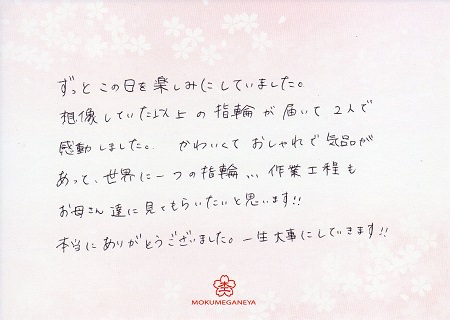 ずっとこの日を楽しみにしていました。
想像していた以上の指輪が届いて2人で
感動しました。かわいくておしゃれで気品が
あって、世界に一つの指輪、、、作業工程も
お母さん達に見てもらいたいと思います!!
本当にありがとうございました。一生大事にしていきます!!
MOKUMEGANEYA